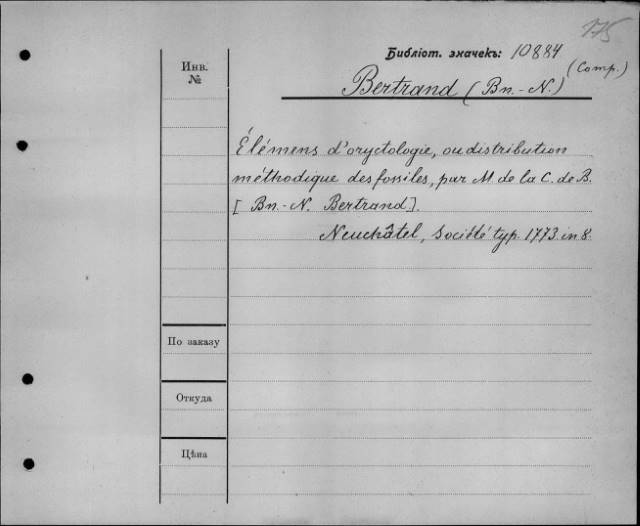 175
Библіот. значекъ: 10884
(Comp.)
Bertrand (Bn.-N.)
Инв.
№
Élémens d'oryctologie, ou distribution
méthodique des fossiles, par M. de la C. de B.
[Bn.-N. Bertrand].
Neuchâtel, Société typ. 1773. in 8.
По заказу
Откуда
Цѣна